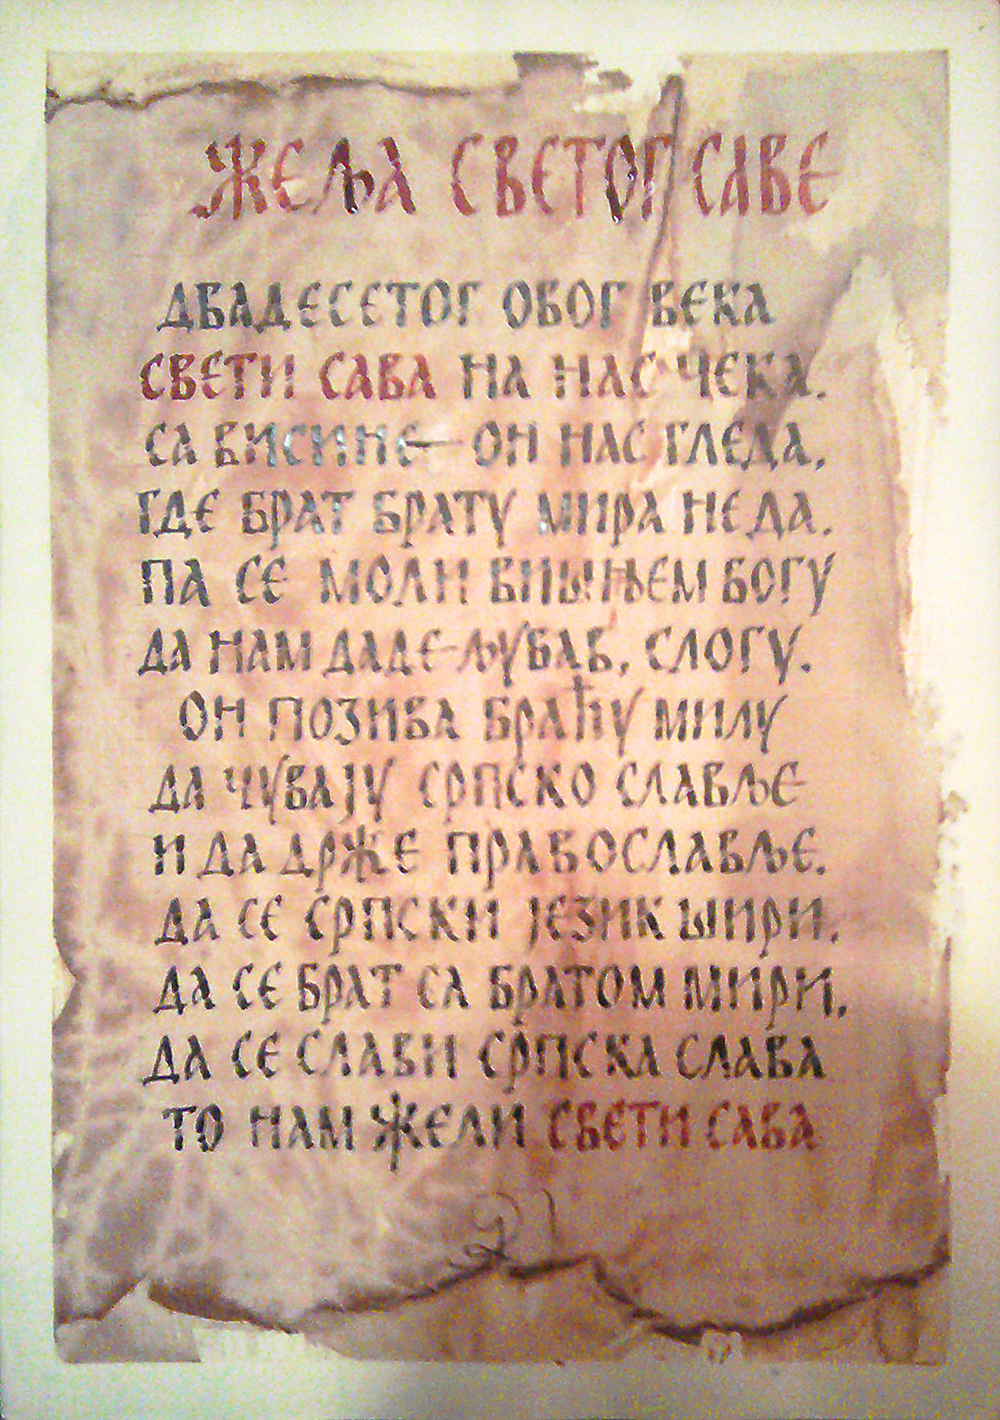 ЖЕЉА СВЕТОГ САВЕ
ДВАДЕСЕТОГ ОВОГ ВЕКА
СВЕТИ САВА НА НАС ЧЕКА.
СА ВИСИНЕ ОН НАС ГЛЕДА,
ГДЕ БРАТ БРАТУ МИРА НЕДА.
ПА СЕ МОЛИ ВИШЊЕМ БОГУ
ДА НАМ ДАДЕ ЉУБАВ, СЛОГУ.
ОН ПОЗИВА БРАЋУ МИЛУ
ДА ЧУВАЈУ СРПСКО СЛАВЉЕ
И ДА ДРЖЕ ПРАВОСЛАВЉЕ.
ДА СЕ СРПСКИ ЈЕЗИК ШИРИ,
ДА СЕ БРАТ СА БРАТОМ МИРИ,
ДА СЕ СЛАВИ СРПСКА СЛАВА
ТО НАМ ЖЕЛИ СВЕТИ САВА